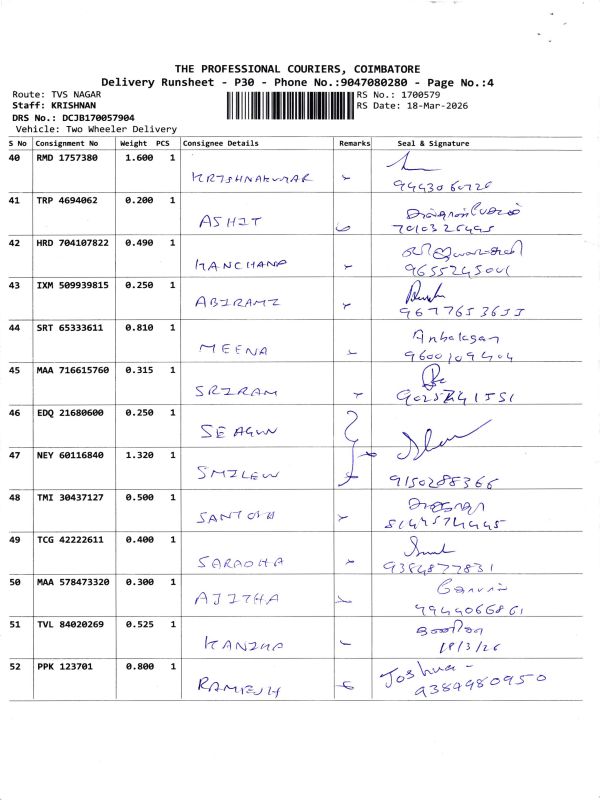 THE PROFESSIONAL COURIERS, COIMBATORE
Delivery Runsheet - P30 - Phone No.:9047080280 - Page No.:4
Route: TVS NAGAR
RS No.: 1700579
Staff: KRISHNAN
RS Date: 18-Mar-2026
DRS No.: DCJB170057904
Vehicle: Two Wheeler Delivery
S No Consignment No Weight PCS Consignee Details Remarks Seal & Signature
40 RMD 1757380 1.600 1
KRISHNAKUMAR
41 TRP 4694062 0.200 1
ASHIT
42 HRD 704107822 0.490 1
KANCHANA
9655245001
43 IXM 509939815 0.250 1
ABIRAMI
9677653655
44 SRT 65333611 0.810 1 Anbalagan
MEENA
9600109404
45 MAA 716615760 0.315 1
SRIRAM
46 EDQ 21680600 0.250 1
47 NEY 60116840 1.320 1
9150288366
48 TMI 30437127 0.500 1
SANTOSH
49 TCG 42222611 0.400 1
SARADHA
9384877831
50 MAA 578473320 0.300 1
AJITHA
4944066861
51 TVL 84020269 0.525 1
18/3/26
52 PPK 123701 0.800 1 Joshua -
RAMESH
9384980950